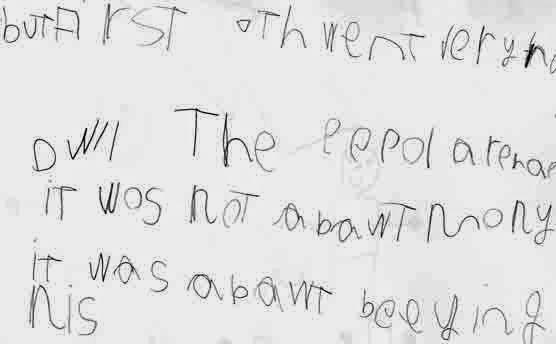 butFirst oth went very
Dwll The peepol are
it wos not abawt mony
it was abawt beeying
nis